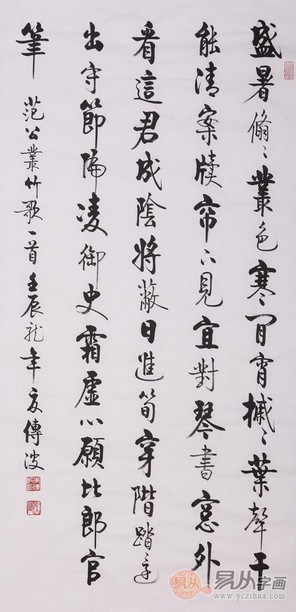 盛暑翛〻叢色寒間宵槭〻葉聲干
能清案牘帘下見宜對琴書窓外
看這君成陰將蔽日進筍穿階踏還
出守節隔凌御史霜虛心願比郎官
筆 范公叢竹歌一首壬辰龍年夏傳波
易从
易从字画
www.yczihua.com